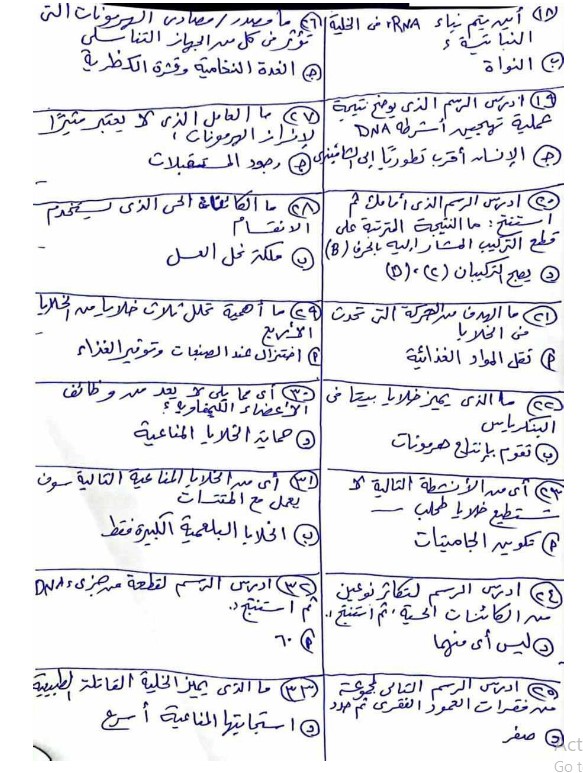 ١٨) أين يتم بناء rRNA فى الخلية
النباتية ؟
ب) النواة
١٩) ادرس الرسم الذى يوضح نتيجة
عملية تهجين أشرطة DNA
ج) الإنسان أقرب تطوريًا إلى الشامبنزى
٢٠) ادرس الرسم الذى أمامك ثم
استنتج: ما النتيجة المترتبة على
قطع التركيب المشار إليه بالحرف (B)
د) يصبح التركيبان (C)، (D)
٢١) ما الهدف من الحركة التى تحدث
فى الخلايا
P) نقل المواد الغذائية
٢٢) ما الذى يميز خلايا بيتا فى
البنكرياس
ب) تقوم بإنتاج هرمونات
٢٣) أى من الأنشطة التالية لا
تستطيع خلايا طحلب
P) تكوين الجاميتات
٢٤) ادرس الرسم لتكاثر نوعين
من الكائنات الحية، ثم استنتج
د) ليس أى منهما
٢٥) ادرس الرسم التالى لمجموعة
من فقرات العمود الفقرى ثم حدد
صفر
٢٦) ما مصدر / مصادر الهرمونات التى
تؤثر فى كل من الجهاز التناسلى
ج) الغدة النخامية وقشرة الكظرية
٢٧) ما العامل الذى لا يعتبر مثيرًا
لإفراز الهرمونات
ج) وجود المستقبلات
٢٨) ما الكائن الحى الذى يستخدم
الانقسام
ب) ملكة نحل العسل
٢٩) ما أهمية تحلل ثلاث خلايا من الخلايا
الأربع
P) اختزال عدد الصبغيات وتوفير الغذاء
٣٠) أى مما يلى لا يعد من وظائف
الأعضاء الليمفاوية ؟
د) حماية الخلايا المناعية
٣١) أى من الخلايا المناعية التالية سوف
يعمل مع المتممات
ب) الخلايا البلعمية الكبيرة فقط
٣٢) ادرس الرسم لقطعة من جزىء DNA
ثم استنتج
P) ٦٠
٣٣) ما الذى يميز الخلية القاتلة الطبيعية
د) استجابتها المناعية أسرع
Act
Go t